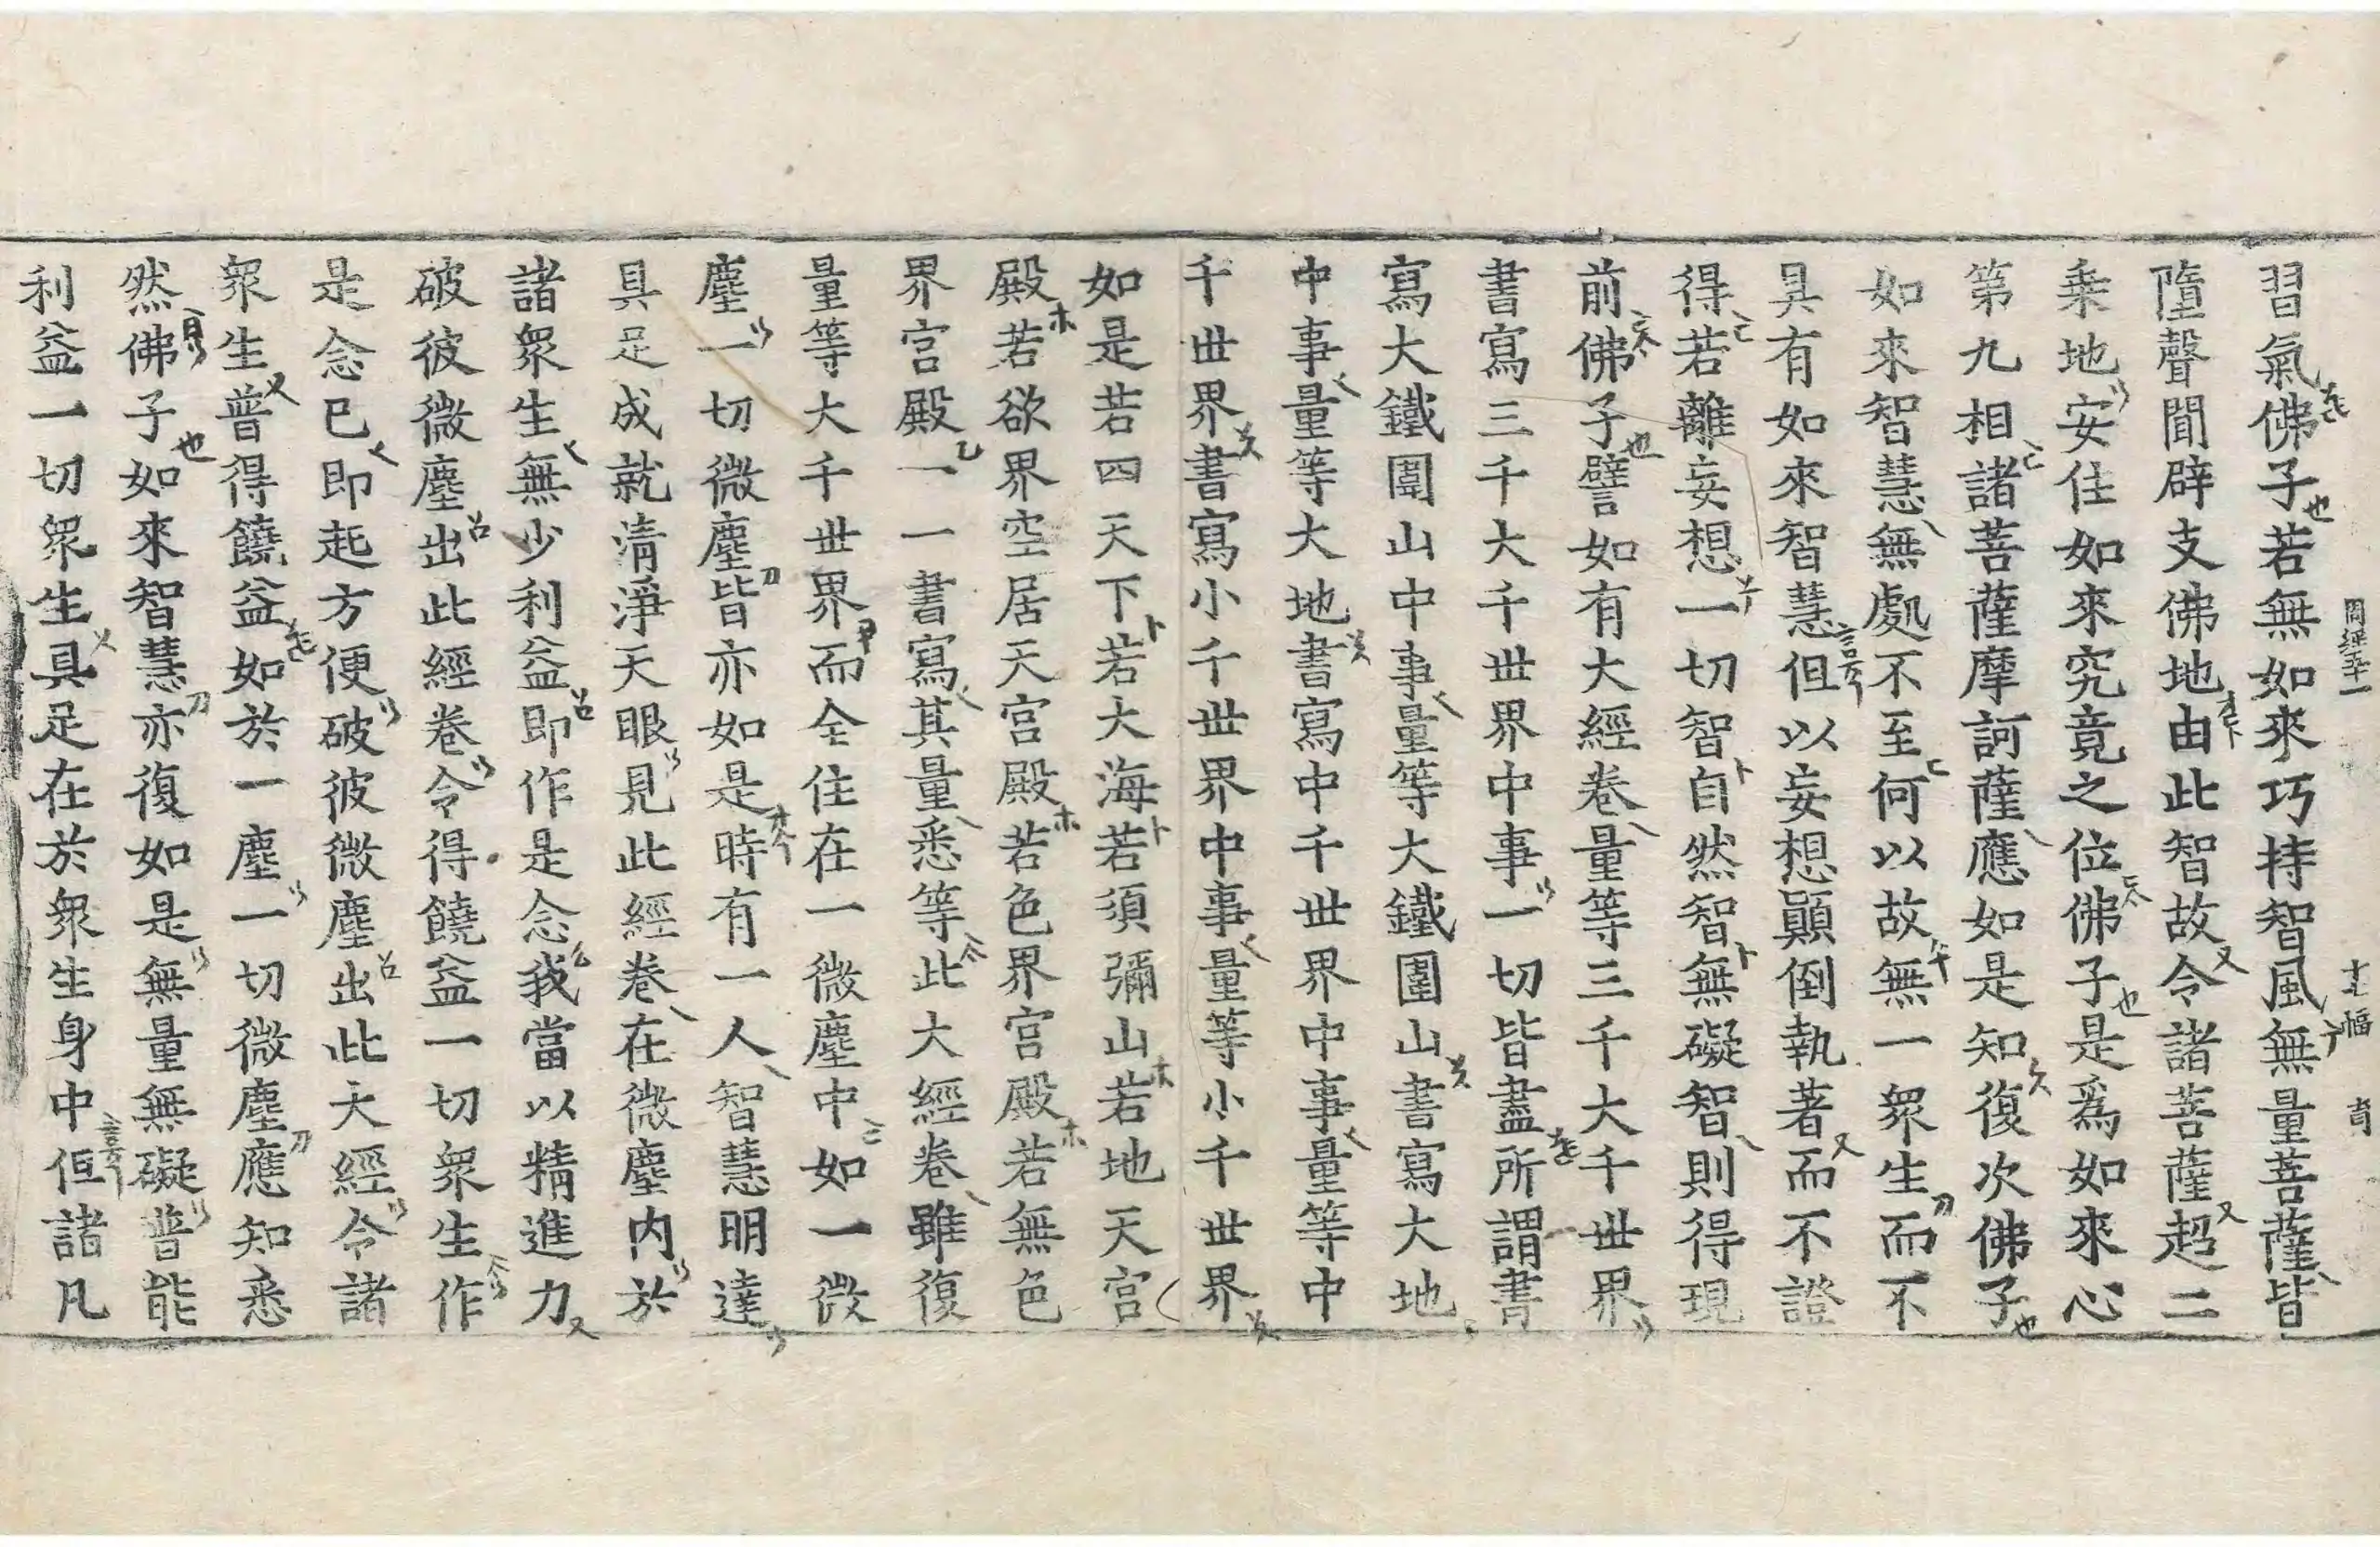 周經五十一 十七幅 育
習氣佛子若無如來巧持智風無量菩薩皆
墮聲聞辟支佛地由此智故令諸菩薩超二
乗地安住如來究竟之位佛子是爲如來心
第九相諸菩薩摩訶薩應如是知復次佛子
如來智慧無處不至何以故無一衆生而不
具有如來智慧但以妄想顚倒執著而不證
得若離妄想一切智自然智無礙智則得現
前佛子譬如有大經卷量等三千大千世界
書寫三千大千世界中事一切皆盡所謂書
寫大鐵圍山中事量等大鐵圍山書寫大地
中事量等大地書寫中千世界中事量等中
千世界書寫小千世界中事量等小千世界
如是若四天下若大海若須彌山若地天宮
殿若欲界空居天宮殿若色界宮殿若無色
界宮殿一一書寫其量悉等此大經卷雖復
量等大千世界而全住在一微塵中如一微
塵一切微塵皆亦如是時有一人智慧明達
具足成就清淨天眼見此經卷在微塵内於
諸衆生無少利益即作是念我當以精進力
破彼微塵出此經卷令得饒益一切衆生作
是念已即起方便破彼微塵出此大經令諸
衆生普得饒益如於一塵一切微塵應知悉
然佛子如來智慧亦復如是無量無礙普能
利益一切衆生具足在於衆生身中但諸凡